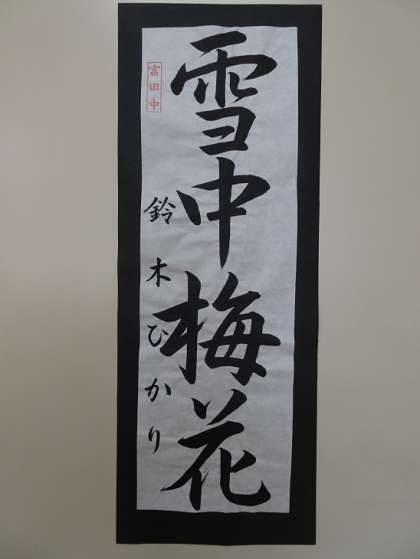 雪中梅花
鈴木ひかり
富田中